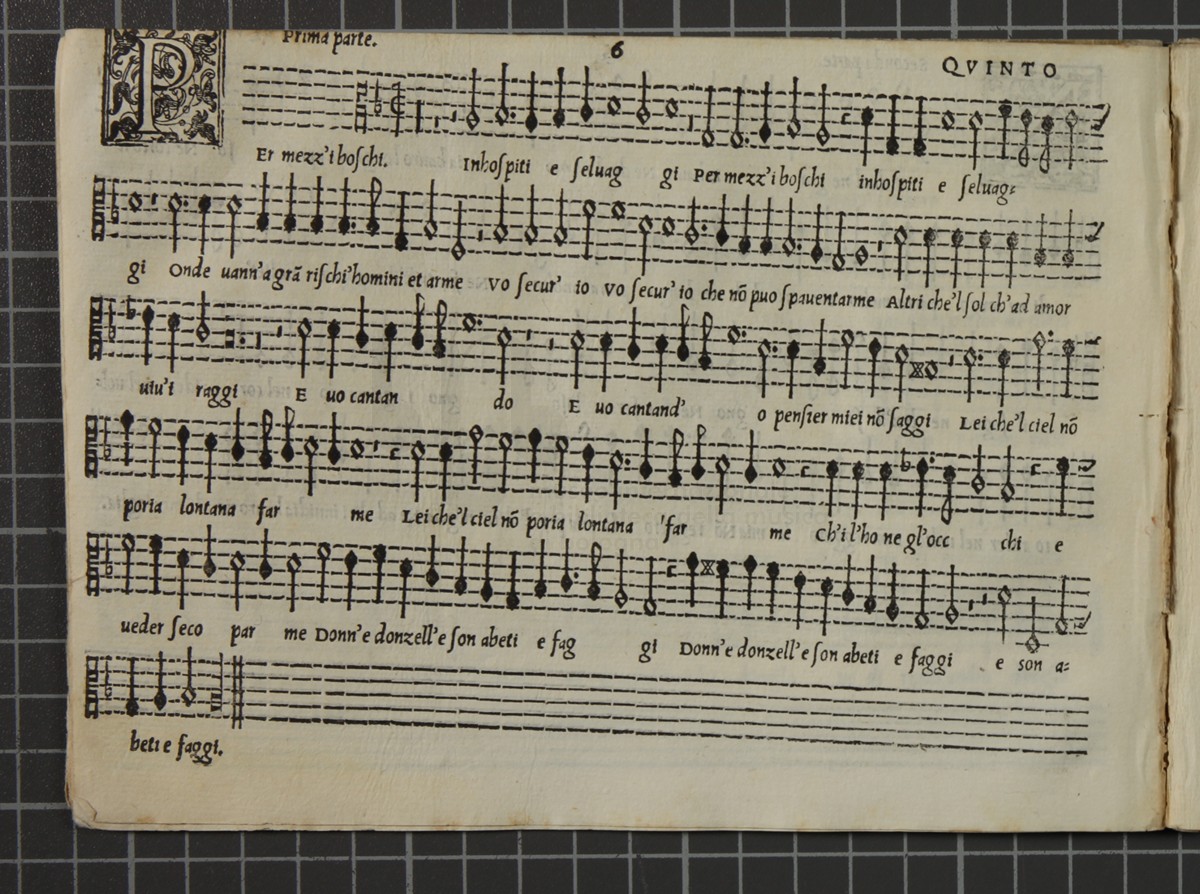 Prima parte.
6
QVINTO
P
Er mezz'i boſchi. Inhoſpiti e ſeluag gi Per mezz'i boſchi inhoſpiti e ſeluag=
gi Onde uann'a grã riſchi'homini et arme Vo ſecur' io Vo ſecur' io che nõ puo ſpauentarme Altri che'l ſol ch'ad amor
uiu'i raggi E uo cantan do E uo cantand' o penſier miei nõ ſaggi Lei che'l ciel nõ
poria lontana far me Lei che'l ciel nõ poria lontana 'far me Ch'i l'ho ne gl'occ chi e
ueder ſeco par me Donn'e donzell'e ſon abeti e fag gi Donn'e donzell'e ſon abeti e faggi e son a=
beti e faggi.